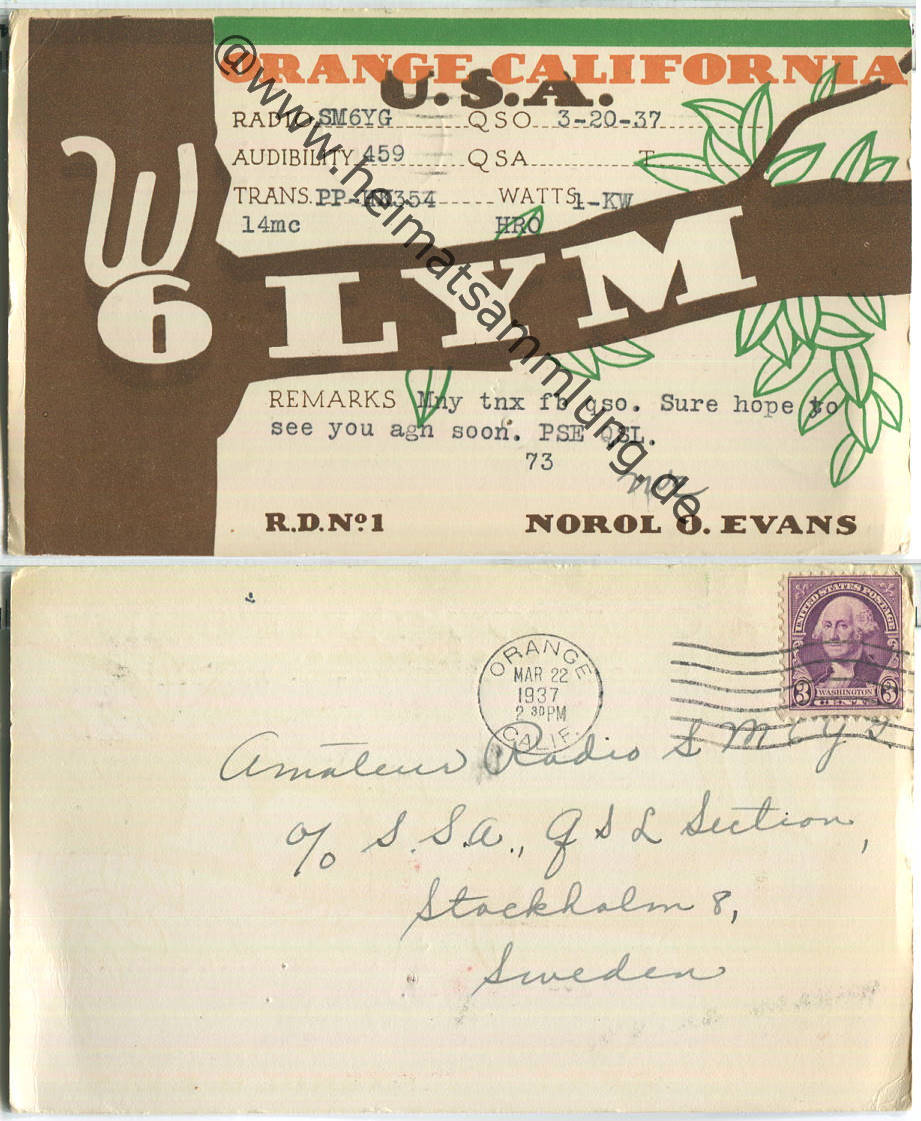 ORANGE CALIFORNIA
U.S.A.
RADIO SM6YG QSO 3-20-37
AUDIBILITY 459 QSA T
TRANS. WATTS 1-KW
14mc HRO
W6LYM
REMARKS Mny tnx fb qso. Sure hope to
see you agn soon. PSE QSL.
73
R.D.Nº1 NOROL O. EVANS
@www.heimatsammlung.de
UNITED STATES POSTAGE
3 WASHINGTON 3
CENTS
ORANGE
MAR 22
1937
2 30 PM
CALIF.
Amateur Radio S M 6 Y G.
c/o S.S.A., Q S L Section,
Stockholm 8,
Sweden